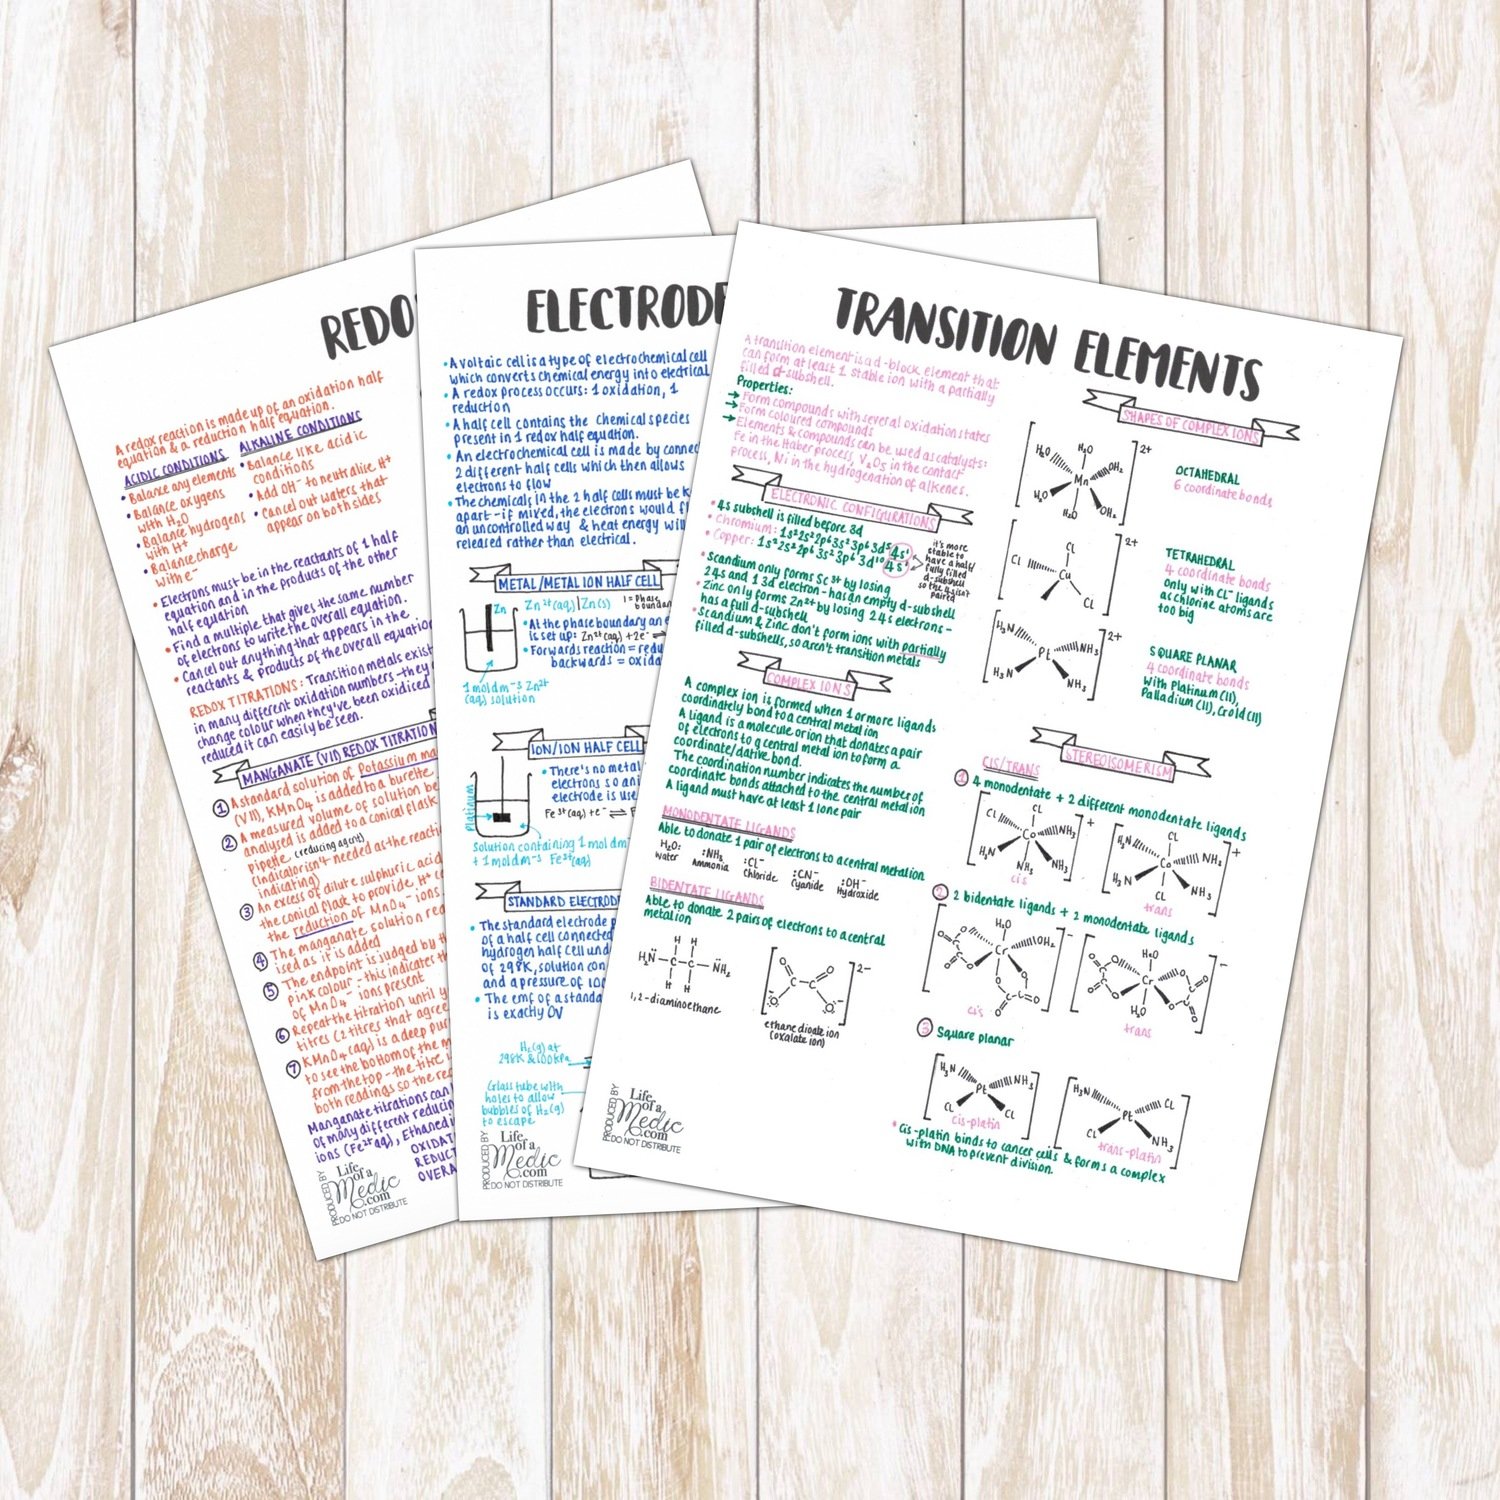 REDO
A redox reaction is made up of an oxidation half
equation & a reduction half equation.
ACIDIC CONDITIONS
• Balance any elements
• Balance oxygens
with H₂O
• Balance hydrogens
with H⁺
• Balance charge
with e⁻
ALKALINE CONDITIONS
• Balance like acidic
conditions
• Add OH⁻ to neutralise H⁺
• Cancel out waters that
appear on both sides
• Electrons must be in the reactants of 1 half
equation and in the products of the other
half equation
• Find a multiple that gives the same number
of electrons to write the overall equation.
• Cancel out anything that appears in the
reactants & products of the overall equation
REDOX TITRATIONS: Transition metals exist
in many different oxidation numbers - they
change colour when they've been oxidiced
reduced it can easily be seen.
MANGANATE (VII) REDOX TITRATION
① A standard solution of Potassium ma
(VII), KMnO₄ is added to a burette
② A measured volume of solution be
analysed is added to a conical flask
pipette. (reducing agent)
(Indicator isn't needed as the reacti
indicating)
③ An excess of dilute sulphuric acid
the conical flask to provide H⁺
the reduction of MnO₄⁻ ions
④ The manganate solution red
ised as it is added
⑤ The endpoint is judged by th
pink colour - this indicates th
of MnO₄⁻ ions present
⑥ Repeat the titration until y
titres (2 titres that agree
⑦ KMnO₄ (aq) is a deep pur
to see the bottom of the m
from the top - the titre i
both readings so the re
Manganate titrations can
of many different reducing
ions (Fe²⁺ aq), Ethanedi
OXIDAT
REDUCT
OVERA
PRODUCED BY
Life
of a
Medic
.com
DO NOT DISTRIBUTE
ELECTRODE
• A voltaic cell is a type of electrochemical cell
which converts chemical energy into electrical
• A redox process occurs: 1 oxidation, 1
reduction
• A half cell contains the chemical species
present in 1 redox half equation.
• An electrochemical cell is made by connec
2 different half cells which then allows
electrons to flow
• The chemicals in the 2 half cells must be k
apart - if mixed, the electrons would f
an uncontrolled way & heat energy will
released rather than electrical.
METAL/METAL ION HALF CELL
Zn
Zn²⁺(aq) | Zn(s)
| = Phase
boundar
• At the phase boundary an e
is set up: Zn²⁺(aq) + 2e⁻ ⇌
• Forwards reaction = redu
backwards = oxida
1 mol dm⁻³ Zn²⁺
(aq) solution
ION/ION HALF CELL
Platinum
• There's no metal
electrons so an
electrode is use
Fe³⁺(aq) + e⁻ ⇌ F
Solution containing 1 mol dm
+ 1 mol dm⁻³ Fe³⁺(aq)
STANDARD ELECTRODE
• The standard electrode p
of a half cell connected
hydrogen half cell und
of 298K, solution con
and a pressure of 100
• The emf of a standa
is exactly 0V
H₂(g) at
298K & 100kPa
Glass tube with
holes to allow
bubbles of H₂(g)
to escape
PRODUCED BY
Life
of a
Medic
.com
DO NOT DISTRIBUTE
TRANSITION ELEMENTS
A transition element is a d-block element that
can form at least 1 stable ion with a partially
filled d-subshell.
Properties:
→ Form compounds with several oxidation states
→ Form coloured compounds
→ Elements & compounds can be used as catalysts:
Fe in the Haber process, V₂O₅ in the contact
process, Ni in the hydrogenation of alkenes.
ELECTRONIC CONFIGURATIONS
• 4s subshell is filled before 3d
• Chromium: 1s²2s²2p⁶3s²3p⁶3d⁵4s¹
• Copper: 1s²2s²2p⁶3s²3p⁶3d¹⁰4s¹
it's more
stable to
have a half/
fully filled
d-subshell
so the 4s isn't
paired
• Scandium only forms Sc³⁺ by losing
2 4s and 1 3d electron - has an empty d-subshell
• Zinc only forms Zn²⁺ by losing 2 4s electrons -
has a full d-subshell
• Scandium & Zinc don't form ions with partially
filled d-subshells, so aren't transition metals
COMPLEX IONS
A complex ion is formed when 1 or more ligands
coordinately bond to a central metal ion
A ligand is a molecule or ion that donates a pair
of electrons to a central metal ion to form a
coordinate/dative bond.
The coordination number indicates the number of
coordinate bonds attached to the central metal ion
A ligand must have at least 1 lone pair
MONODENTATE LIGANDS
Able to donate 1 pair of electrons to a central metal ion
H₂O: :NH₃ :Cl⁻ :CN⁻ :OH⁻
Water Ammonia Chloride Cyanide Hydroxide
BIDENTATE LIGANDS
Able to donate 2 pairs of electrons to a central
metal ion
H H
H₂N C C NH₂
H H
1,2-diaminoethane
O O
C C
O O
2-
ethanedioate ion
(oxalate ion)
PRODUCED BY
Life
of a
Medic
.com
DO NOT DISTRIBUTE
SHAPES OF COMPLEX IONS
H₂O
H₂O OH₂
Mn
H₂O OH₂
H₂O
2+
OCTAHEDRAL
6 coordinate bonds
Cl
Cl Cu
Cl
2+
TETRAHEDRAL
4 coordinate bonds
only with Cl⁻ ligands
as Chlorine atoms are
too big
H₃N NH₃
Pt
H₃N NH₃
2+
SQUARE PLANAR
4 coordinate bonds
with Platinum (II),
Palladium (II), Gold (II)
STEREOISOMERISM
CIS/TRANS
① 4 monodentate + 2 different monodentate ligands
Cl
Cl NH₃
Co
H₃N NH₃
NH₃
+
cis
Cl
H₃N NH₃
Co
H₃N NH₃
Cl
+
trans
② 2 bidentate ligands + 2 monodentate ligands
H₂O
OH₂
Cr
-
cis
H₂O
Cr
H₂O
-
trans
③ Square planar
H₃N NH₃
Pt
Cl Cl
cis-platin
H₃N Cl
Pt
Cl NH₃
trans-platin
• Cis-platin binds to cancer cells & forms a complex
with DNA to prevent division.